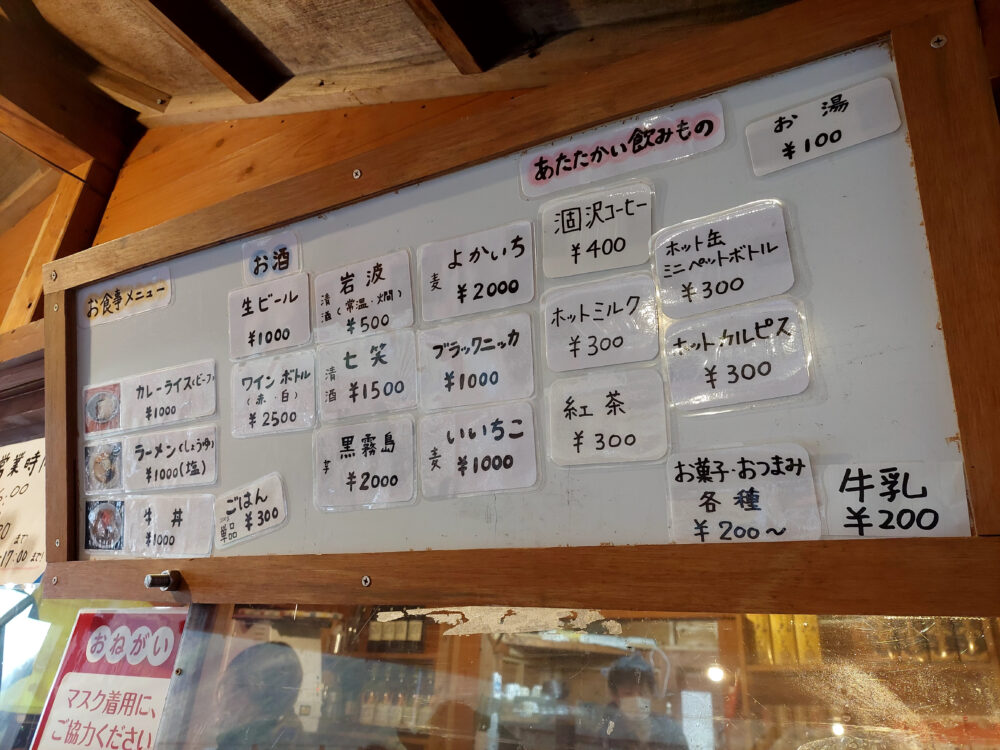 お食事メニュー
カレーライス(ビーフ)
¥1000
ラーメン(しょうゆ)
¥1000(塩)
牛丼
¥1000
ごはん
単品 ¥300
お酒
生ビール
¥1000
ワインボトル
(赤・白)
¥2500
岩波
清酒(常温・燗)
¥500
七笑
清酒 ¥1500
黒霧島
芋 ¥2000
よかいち
麦 ¥2000
ブラックニッカ
¥1000
いいちこ
麦 ¥1000
あたたかい飲みもの
涸沢コーヒー
¥400
ホットミルク
¥300
紅茶
¥300
ホット缶
ミニペットボトル
¥300
ホットカルピス
¥300
お湯
¥100
お菓子・おつまみ
各種
¥200~
牛乳
¥200
営業時
まで
17:00まで
おねがい
マスク着用に、
ご協力ください